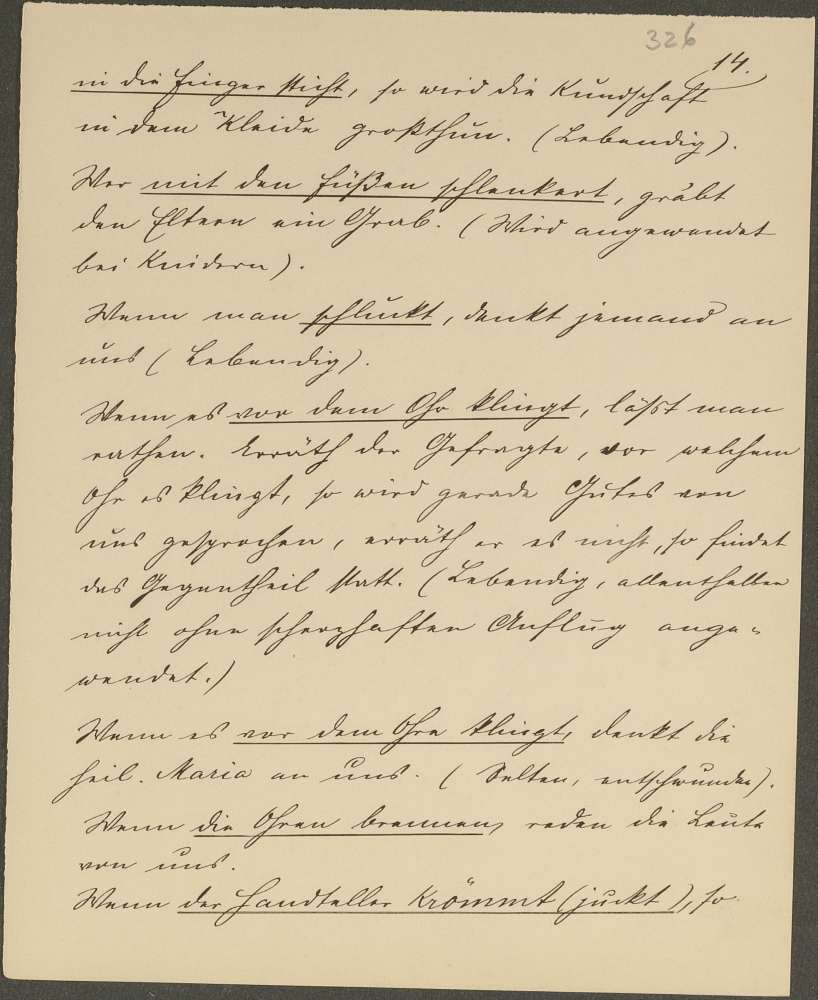 326
14.
in die Finger sticht, so wird die Kundschaft
in dem Kleide großthun. (Lebendig).
Wer mit den Füßen schlenkert, gräbt
den Eltern ein Grab. (Wird angewendet
bei Kindern).
Wenn man schluckt, denkt jemand an
uns (Lebendig).
Wenn es vor dem Ohr klingt, läßt man
rathen. Erräth der Gefragte, vor welchem
Ohr es klingt, so wird gerade Gutes von
uns gesprochen, erräth er es nicht, so findet
das Gegentheil statt. (Lebendig, allenthalben
nicht ohne scherzhaften Anflug ange-
wendet.)
Wenn es vor dem Ohre klingt, denkt die
heil. Maria an uns. (Selten, entschwunden).
Wenn die Ohren brennen, reden die Leute
von uns.
Wenn der Handteller krömmt (juckt), so